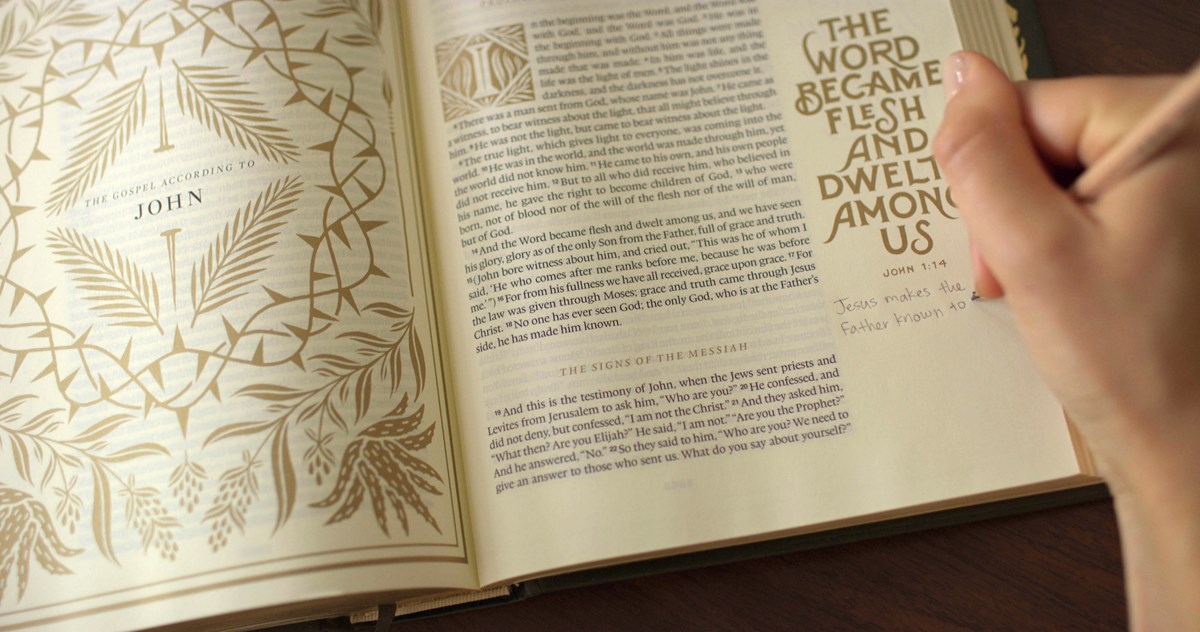 THE GOSPEL ACCORDING TO
JOHN
I
n the beginning was the Word, and the Word was
with God, and the Word was God. ² He was in
the beginning with God. ³ All things were made
through him, and without him was not any thing
made that was made. ⁴ In him was life, and the
life was the light of men. ⁵ The light shines in the
darkness, and the darkness has not overcome it.
⁶ There was a man sent from God, whose name was John. ⁷ He came as a
witness, to bear witness about the light, that all might believe through
him. ⁸ He was not the light, but came to bear witness about the light.
⁹ The true light, which gives light to everyone, was coming into the
world. ¹⁰ He was in the world, and the world was made through him, yet
the world did not know him. ¹¹ He came to his own, and his own people
did not receive him. ¹² But to all who did receive him, who believed in
his name, he gave the right to become children of God, ¹³ who were
born, not of blood nor of the will of the flesh nor of the will of man,
but of God.
¹⁴ And the Word became flesh and dwelt among us, and we have seen
his glory, glory as of the only Son from the Father, full of grace and truth.
¹⁵ (John bore witness about him, and cried out, “This was he of whom I
said, ‘He who comes after me ranks before me, because he was before
me.’”) ¹⁶ For from his fullness we have all received, grace upon grace. ¹⁷ For
the law was given through Moses; grace and truth came through Jesus
Christ. ¹⁸ No one has ever seen God; the only God, who is at the Father’s
side, he has made him known.
THE SIGNS OF THE MESSIAH
¹⁹ And this is the testimony of John, when the Jews sent priests and
Levites from Jerusalem to ask him, “Who are you?” ²⁰ He confessed, and
did not deny, but confessed, “I am not the Christ.” ²¹ And they asked him,
“What then? Are you Elijah?” He said, “I am not.” “Are you the Prophet?”
And he answered, “No.” ²² So they said to him, “Who are you? We need to
give an answer to those who sent us. What do you say about yourself?”
THE
WORD
BECAME
FLESH
AND
DWELT
AMONG
US
JOHN 1:14
Jesus makes the
Father known to